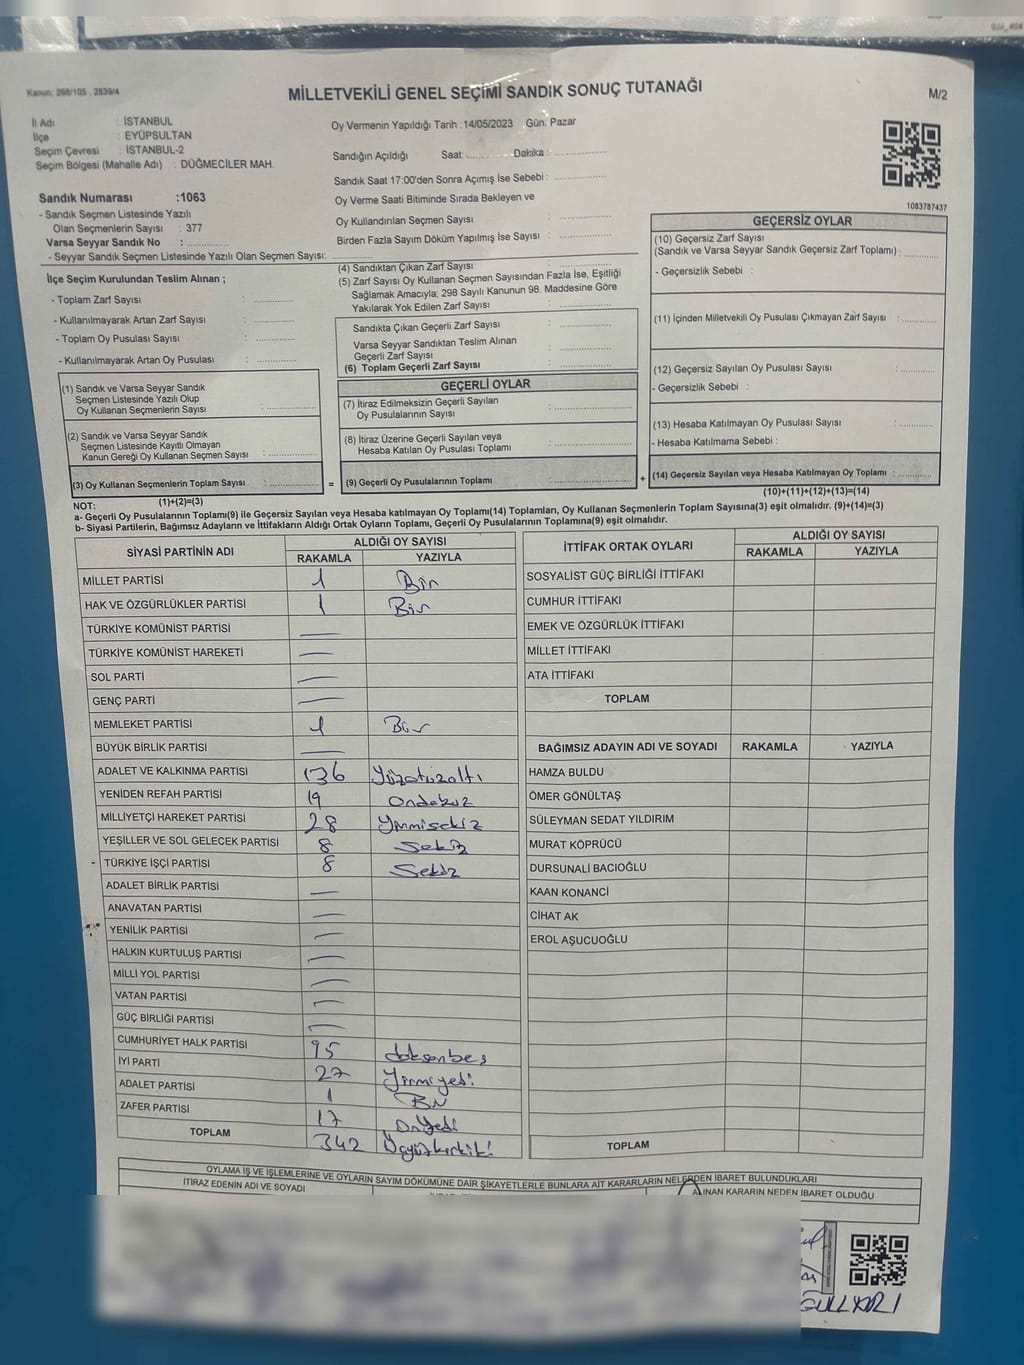 Kanun: 298/105 , 2839/4
MİLLETVEKİLİ GENEL SEÇİMİ SANDIK SONUÇ TUTANAĞI
M/2
İl Adı : İSTANBUL
İlçe : EYÜPSULTAN
Seçim Çevresi : İSTANBUL-2
Seçim Bölgesi (Mahalle Adı) : DÜĞMECİLER MAH.
Sandık Numarası :1063
- Sandık Seçmen Listesinde Yazılı
Olan Seçmenlerin Sayısı : 377
Varsa Seyyar Sandık No : ............
- Seyyar Sandık Seçmen Listesinde Yazılı Olan Seçmen Sayısı: ............
Oy Vermenin Yapıldığı Tarih :14/05/2023 Gün: Pazar
Sandığın Açıldığı Saat: ............ Dakika : ............
Sandık Saat 17:00'den Sonra Açımış İse Sebebi : ............
Oy Verme Saati Bitiminde Sırada Bekleyen ve
Oy Kullandırılan Seçmen Sayısı : ............
Birden Fazla Sayım Döküm Yapılmış İse Sayısı : ............
1083787437
İlçe Seçim Kurulundan Teslim Alınan ;
- Toplam Zarf Sayısı : ............
- Kullanılmayarak Artan Zarf Sayısı : ............
- Toplam Oy Pusulası Sayısı : ............
- Kullanılmayarak Artan Oy Pusulası : ............
(1) Sandık ve Varsa Seyyar Sandık
Seçmen Listesinde Yazılı Olup
Oy Kullanan Seçmenlerin Sayısı : ............
(2) Sandık ve Varsa Seyyar Sandık
Seçmen Listesinde Kayıtlı Olmayan
Kanun Gereği Oy Kullanan Seçmen Sayısı : ............
(3) Oy Kullanan Seçmenlerin Toplam Sayısı : ............
(1)+(2)=(3)
(4) Sandıktan Çıkan Zarf Sayısı : ............
(5) Zarf Sayısı Oy Kullanan Seçmen Sayısından Fazla İse, Eşitliği
Sağlamak Amacıyla; 298 Sayılı Kanunun 98. Maddesine Göre
Yakılarak Yok Edilen Zarf Sayısı : ............
Sandıkta Çıkan Geçerli Zarf Sayısı : ............
Varsa Seyyar Sandıktan Teslim Alınan
Geçerli Zarf Sayısı : ............
(6) Toplam Geçerli Zarf Sayısı : ............
GEÇERLİ OYLAR
(7) İtiraz Edilmeksizin Geçerli Sayılan
Oy Pusulalarının Sayısı : ............
(8) İtiraz Üzerine Geçerli Sayılan veya
Hesaba Katılan Oy Pusulası Toplamı : ............
= (9) Geçerli Oy Pusulalarının Toplamı : ............
GEÇERSİZ OYLAR
(10) Geçersiz Zarf Sayısı
(Sandık ve Varsa Seyyar Sandık Geçersiz Zarf Toplamı) : ............
- Geçersizlik Sebebi :
(11) İçinden Milletvekili Oy Pusulası Çıkmayan Zarf Sayısı : ............
(12) Geçersiz Sayılan Oy Pusulası Sayısı : ............
- Geçersizlik Sebebi :
(13) Hesaba Katılmayan Oy Pusulası Sayısı : ............
- Hesaba Katılmama Sebebi :
+ (14) Geçersiz Sayılan veya Hesaba Katılmayan Oy Toplamı : ............
(10)+(11)+(12)+(13)=(14)
NOT:
a- Geçerli Oy Pusulalarının Toplamı(9) ile Geçersiz Sayılan veya Hesaba katılmayan Oy Toplamı(14) Toplamları, Oy Kullanan Seçmenlerin Toplam Sayısına(3) eşit olmalıdır. (9)+(14)=(3)
b- Siyasi Partilerin, Bağımsız Adayların ve İttifakların Aldığı Ortak Oyların Toplamı, Geçerli Oy Pusulalarının Toplamına(9) eşit olmalıdır.
SİYASİ PARTİNİN ADI ALDIĞI OY SAYISI
RAKAMLA YAZIYLA
MİLLET PARTİSİ 1 Bir
HAK VE ÖZGÜRLÜKLER PARTİSİ 1 Bir
TÜRKİYE KOMÜNİST PARTİSİ —
TÜRKİYE KOMÜNİST HAREKETİ —
SOL PARTİ —
GENÇ PARTİ —
MEMLEKET PARTİSİ 1 Bir
BÜYÜK BİRLİK PARTİSİ —
ADALET VE KALKINMA PARTİSİ 136 Yüzotuzaltı
YENİDEN REFAH PARTİSİ 19 Ondokuz
MİLLİYETÇİ HAREKET PARTİSİ 28 Yirmisekiz
YEŞİLLER VE SOL GELECEK PARTİSİ 8 Sekiz
- TÜRKİYE İŞÇİ PARTİSİ 8 Sekiz
ADALET BİRLİK PARTİSİ —
ANAVATAN PARTİSİ —
YENİLİK PARTİSİ —
HALKIN KURTULUŞ PARTİSİ —
MİLLİ YOL PARTİSİ —
VATAN PARTİSİ —
GÜÇ BİRLİĞİ PARTİSİ —
CUMHURİYET HALK PARTİSİ 95 doksanbeş
İYİ PARTİ 27 Yirmiyedi
ADALET PARTİSİ 1 Bir
ZAFER PARTİSİ 17 Onyedi
TOPLAM 342 Üçyüzkırkiki
İTTİFAK ORTAK OYLARI ALDIĞI OY SAYISI
RAKAMLA YAZIYLA
SOSYALİST GÜÇ BİRLİĞİ İTTİFAKI
CUMHUR İTTİFAKI
EMEK VE ÖZGÜRLÜK İTTİFAKI
MİLLET İTTİFAKI
ATA İTTİFAKI
TOPLAM
BAĞIMSIZ ADAYIN ADI VE SOYADI RAKAMLA YAZIYLA
HAMZA BULDU
ÖMER GÖNÜLTAŞ
SÜLEYMAN SEDAT YILDIRIM
MURAT KÖPRÜCÜ
DURSUNALİ BACIOĞLU
KAAN KONANCİ
CİHAT AK
EROL AŞUCUOĞLU
TOPLAM
OYLAMA İŞ VE İŞLEMLERİNE VE OYLARIN SAYIM DÖKÜMÜNE DAİR ŞİKAYETLERLE BUNLARA AİT KARARLARIN NELERDEN İBARET BULUNDUKLARI
İTİRAZ EDENİN ADI VE SOYADI
ALINAN KARARIN NEDEN İBARET OLDUĞU